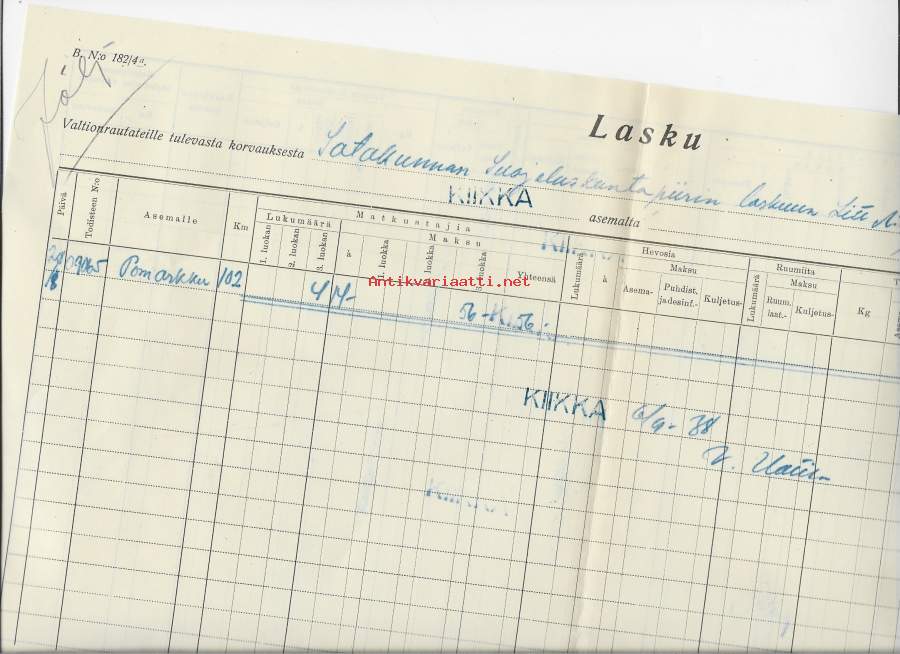 B. N:o 182/4a.
Lasku
Valtionrautateille tulevasta korvauksesta Satakunnan Suojeluskuntapiirin laskuun
KIIKKA asemalta
Päivä Todisteen N:o Asemalle Km Matkustajia Hevosia Ruumiita
Lukumäärä Maksu Lukumäärä à Maksu Lukumäärä Maksu Kg
1. luokan 2. luokan 3. luokan à 1. luokka luokka 3. luokka Yhteensä Asema- Puhdist. jadesinf.- Kuljetus- Ruum. laat.- Kuljetus-
Pomarkku 102 4 14- 56- 56:-
Antikvariaatti.net
KIIKKA 6/9-38